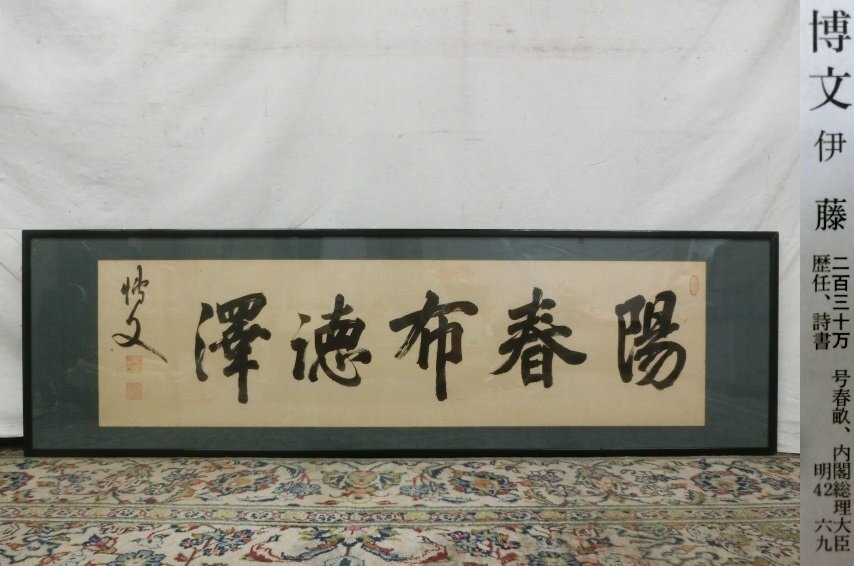 陽春布徳澤
博文
博文 伊藤
二百三十万 号春畝、内閣総理大臣
歴任、詩書 明42 六九